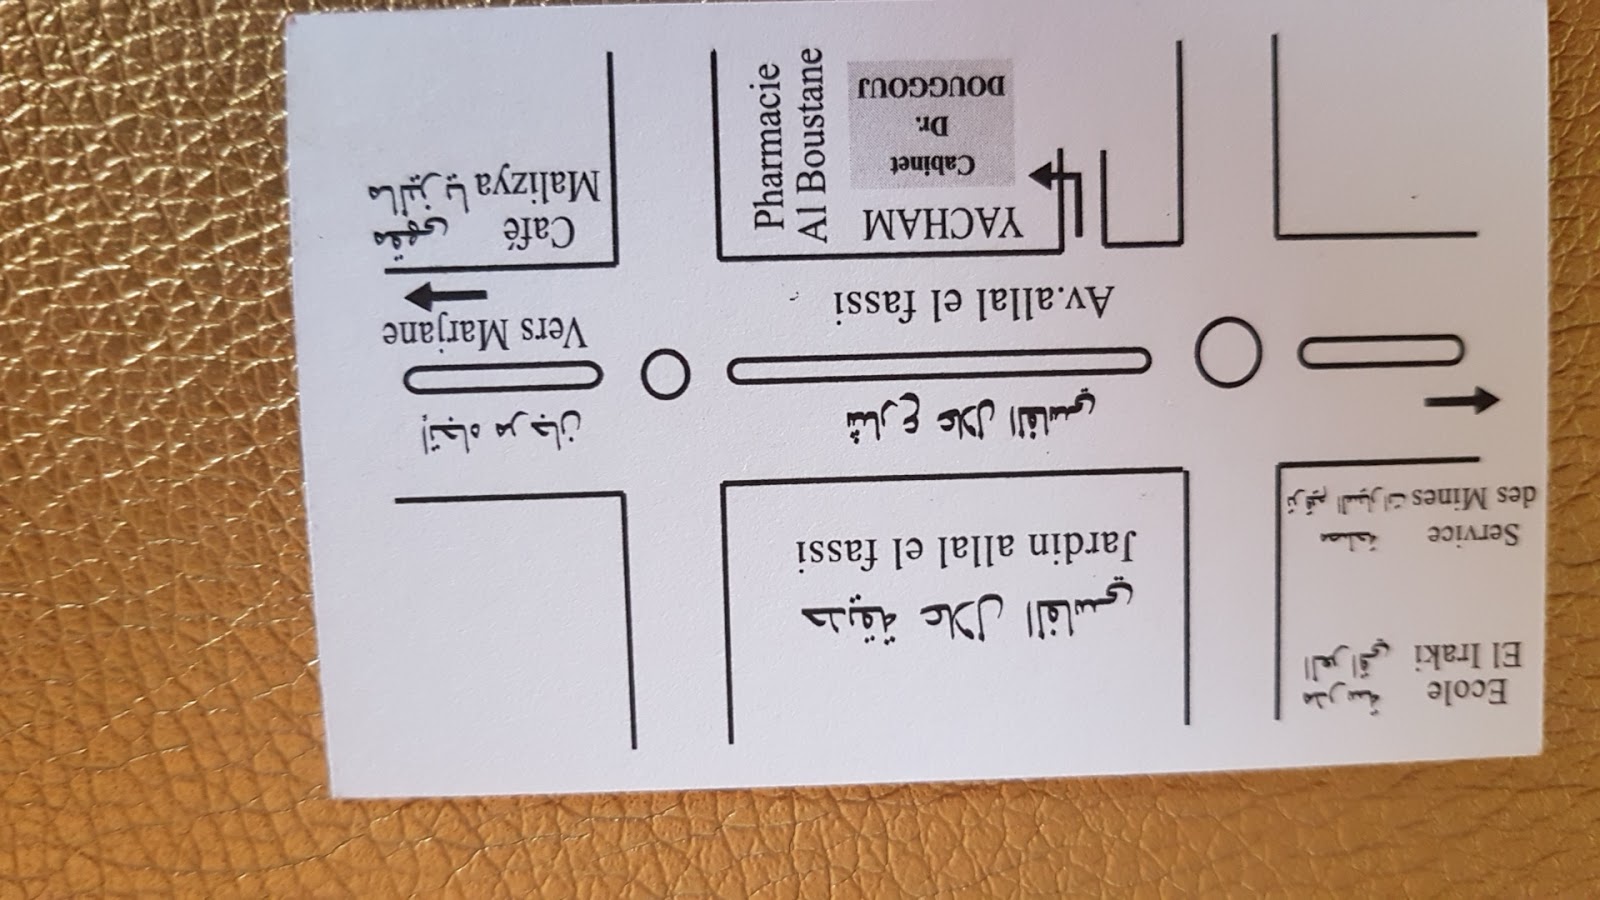 Ecole مدرسة
El Iraki العراقي
حديقة علال الفاسي
Jardin allal el fassi
Service مصلحة
des Mines ترقيم السيارات
شارع علال الفاسي
إتجاه مرجان
Av.allal el fassi
Vers Marjane
YACHAM
Cabinet
Dr.
DOUGGOUJ
Pharmacie
Al Boustane
Café مقهى
Malizya ماليزيا